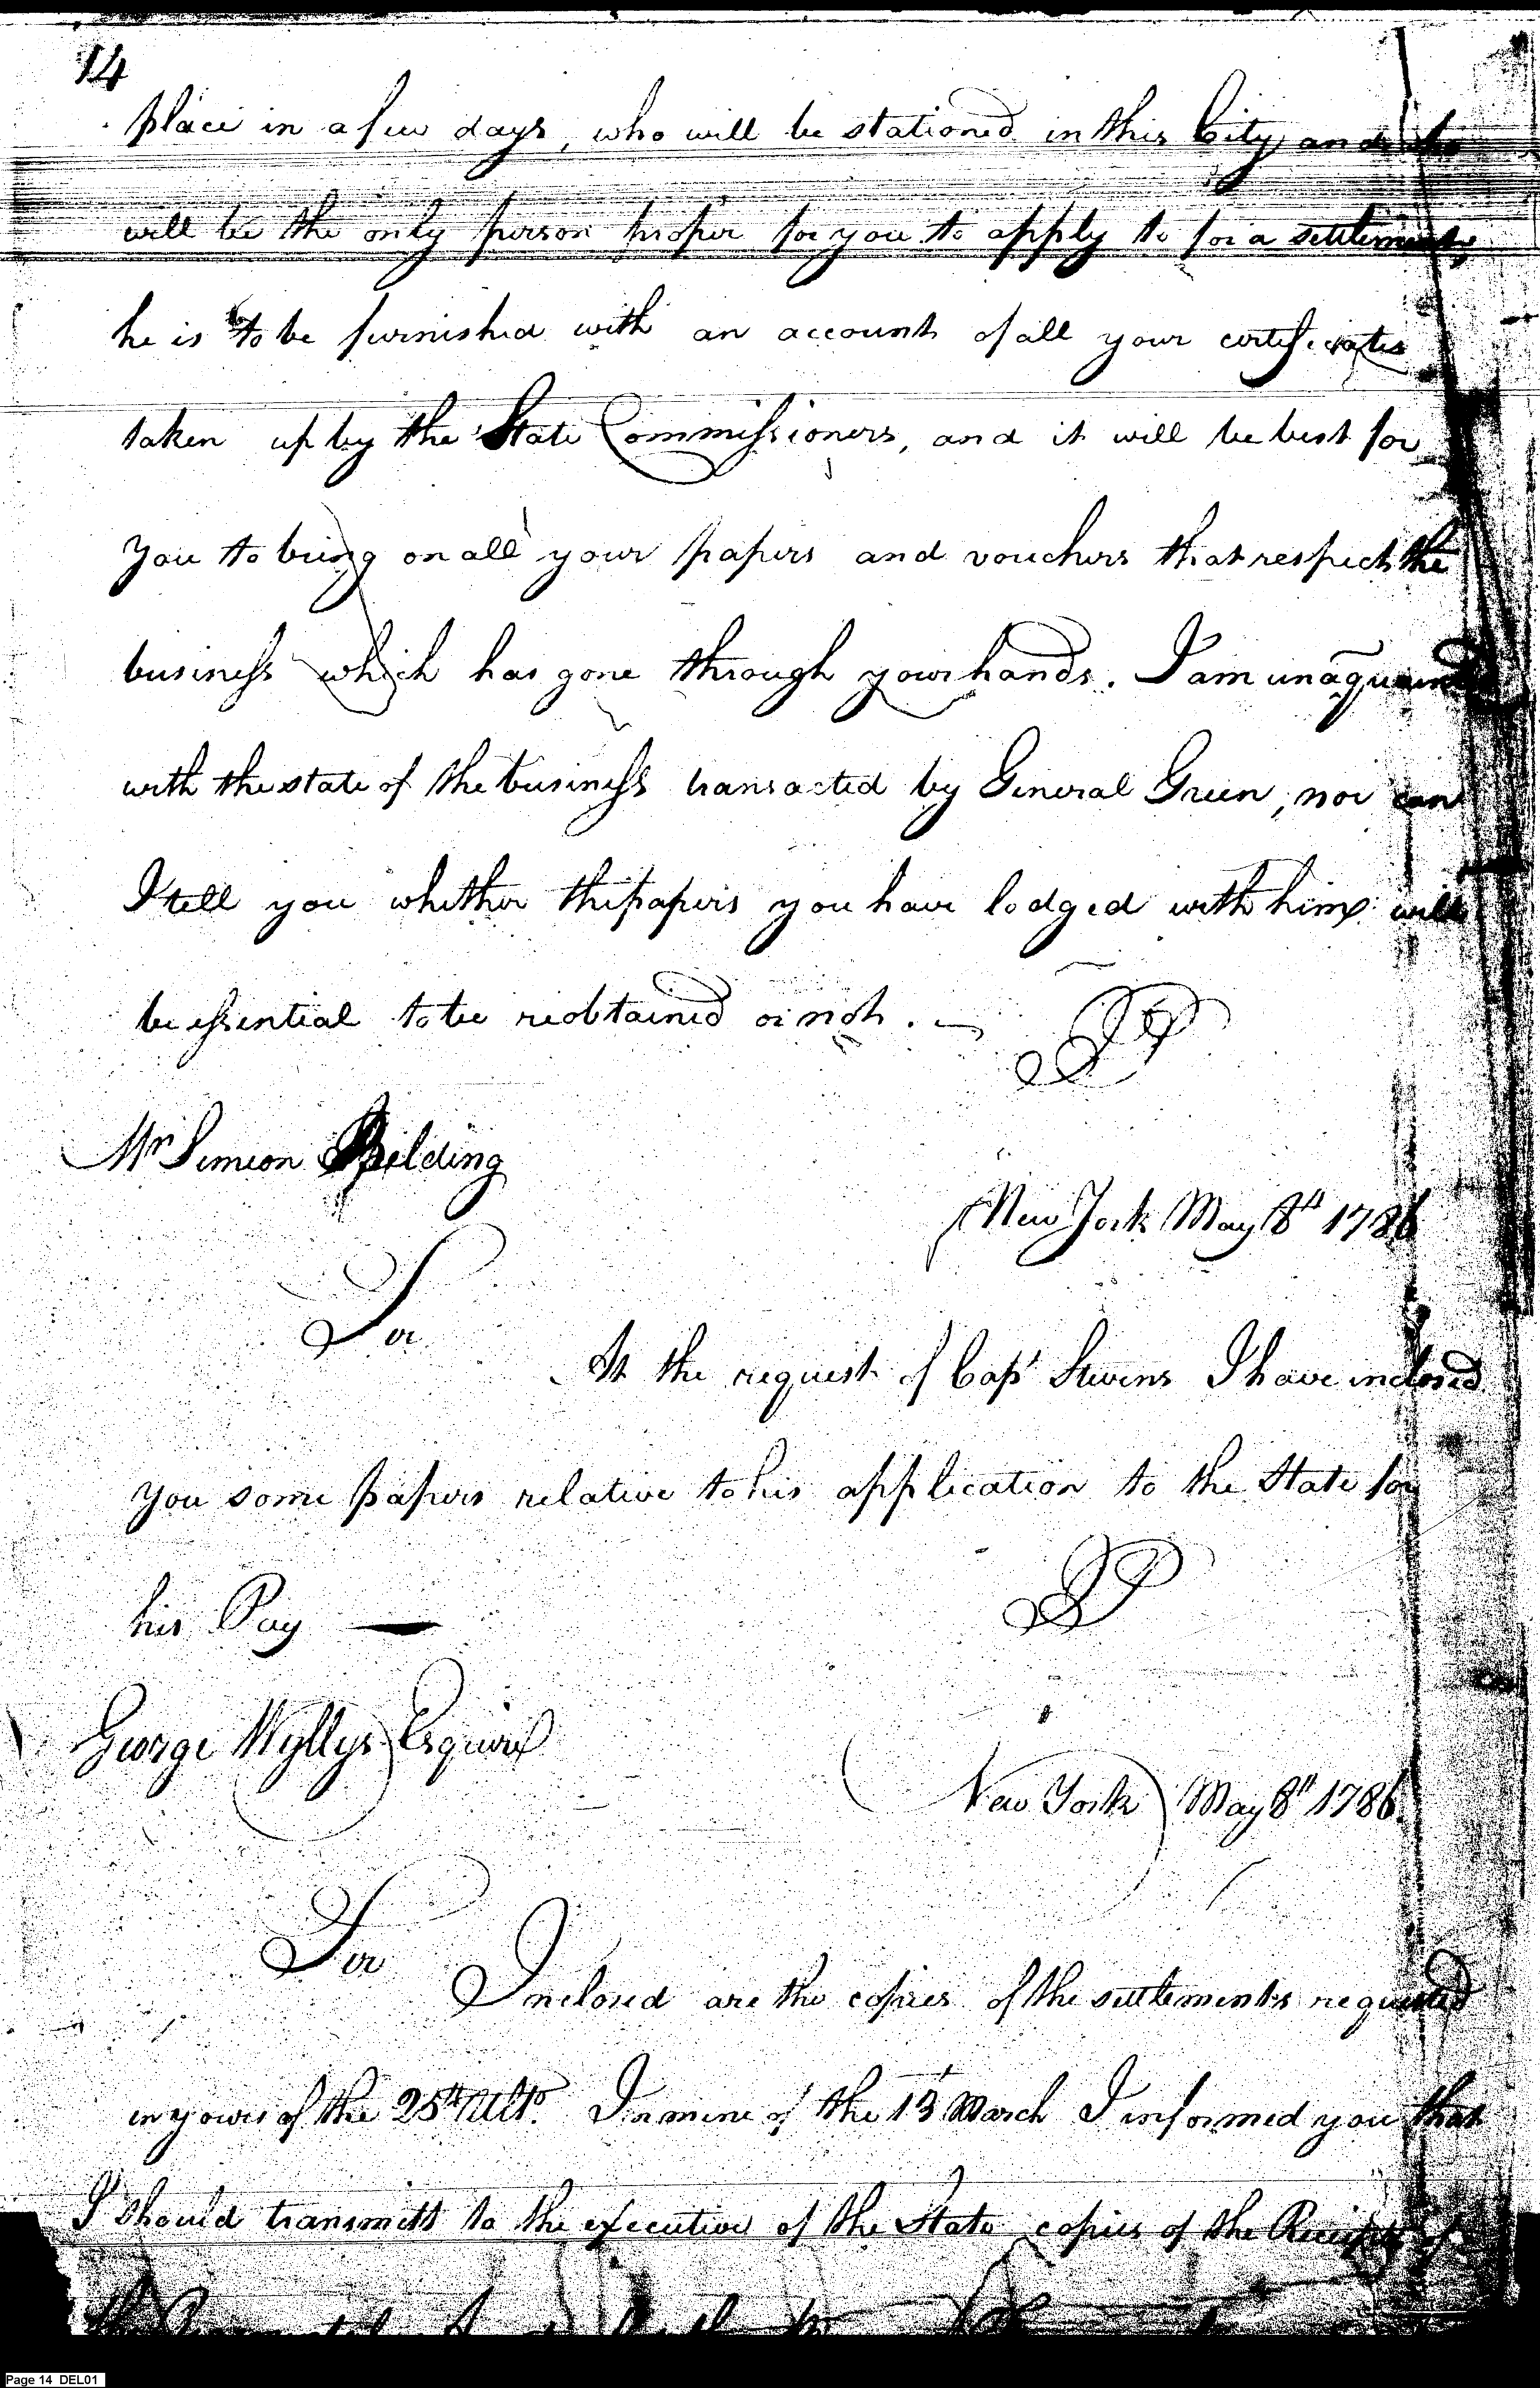 14
place in a few days, who will be stationed in this City and who
will be the only person proper for you to apply to for a settlement,
he is to be furnished with an account of all your certificates
taken up by the State Commissioners, and it will be best for
you to bring on all your papers and vouchers that respect the
business which has gone through your hands. I am unaquainted
with the state of the business transacted by General Green, nor can
I tell you whether the papers you have lodged with him will
be essential to be reobtained or not. —
JP
Mr Simeon Belding
New York May 8th 1786
Sir
At the request of Capt Stevens I have inclosed
you some papers relative to his application to the State for
his Pay —
JP
George Wyllys Esquire
New York May 8th 1786.
Sir
Inclosed are the copies of the settlements requested
in yours of the 25th Ulto. In mine of the 13t March I informed you that
I should transmitt to the executive of the State copies of the Receipts of
Page 14 DEL01